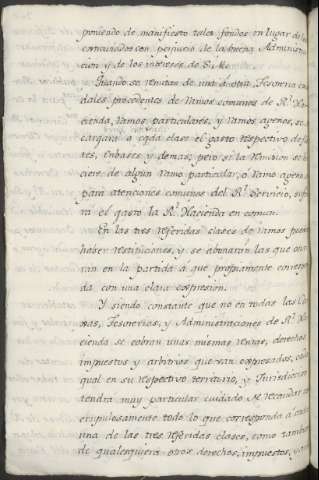 poniendo de manifiesto tales fondos en lugar de
con perjuicio de la buena Adminis
cion y de los intereses de S. M.
Quando se remitan de una á otra Tesoreria cau
dales procedentes de Ramos comunes de Rl. Ha
cienda, Ramos particulares, y Ramos agenos, se
cargará a cada clase el gasto respectivo de fle
tes, enbases y demas; pero si la remision se hi
ciere de algun ramo particular, o ramo ageno
para atenciones comunes del Rl. Servicio, sufri
rá el gasto la Rl. Hacienda en comun.
En las tres referidas clases de ramos puede
haber restituciones, y se abonarán las que ocur
ran en la partida á que propiamente correspon
da con una clara expresion.
Y siendo constante que no en todas las Ca
xas, Tesorerias, y Administraciones de Rl. Ha
cienda se cobran unas mismas rentas, derechos
impuestos y arbitrios que van expresados, cada
qual en su respectivo territorio, y Jurisdiccion
tendrá muy particular cuidado de recaudar es
crupulosamente todo lo que corresponda á cada
una de las tres referidas clases, como tambien
de qualesquiera otros derechos, impuestos, y